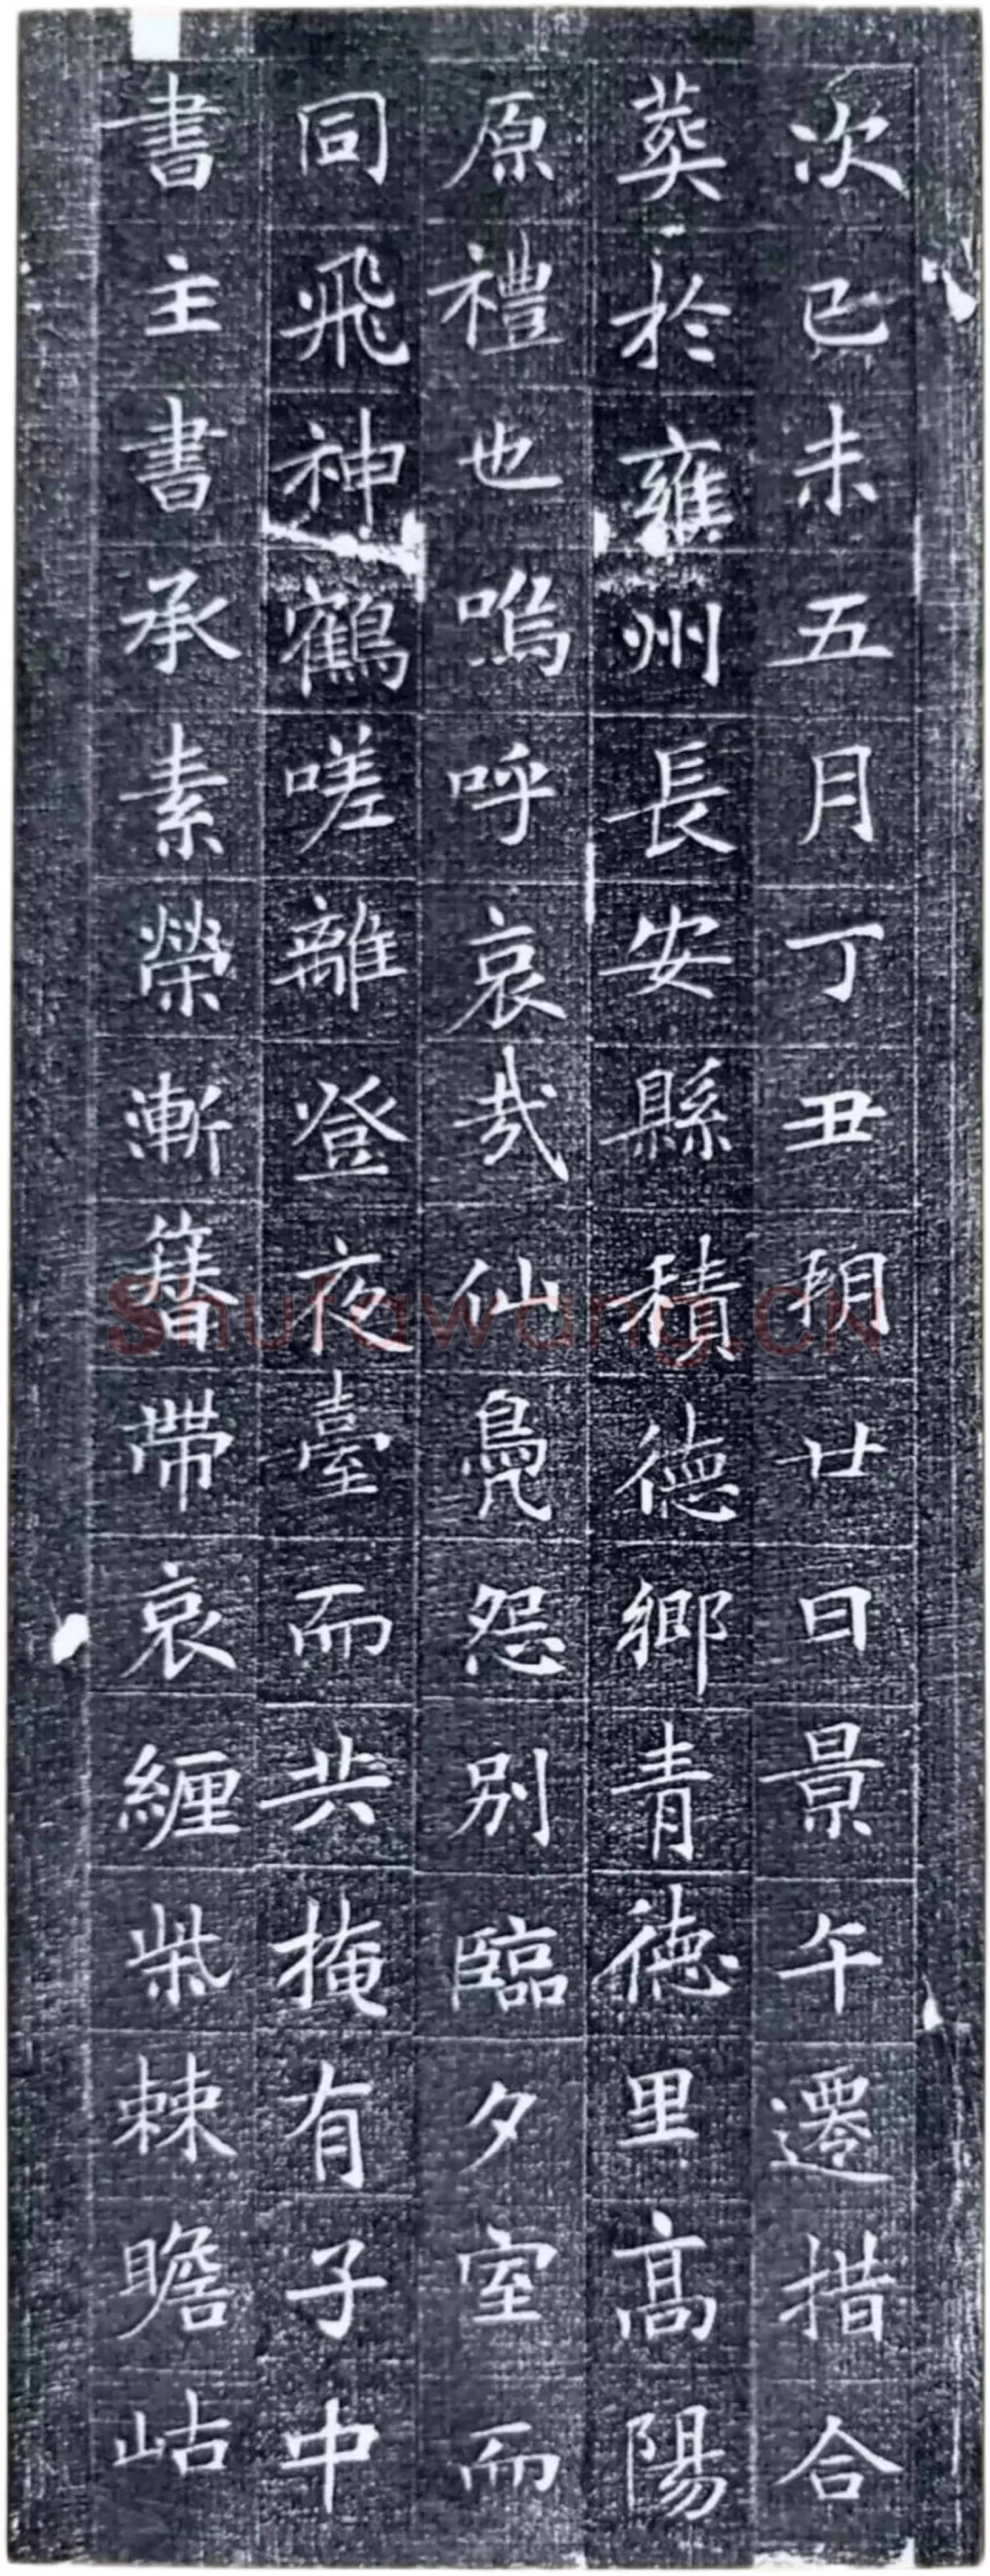 次已未五月丁丑朔廿日景午遷措合
葬於雍州長安縣積德鄉青德里高陽
原禮也嗚呼哀哉仙鳧怨別臨夕室而
同飛神鶴嗟離登夜臺而共掩有子中
書主書承素榮漸簪帶哀纏柴棘瞻岵
Shufawang.CN